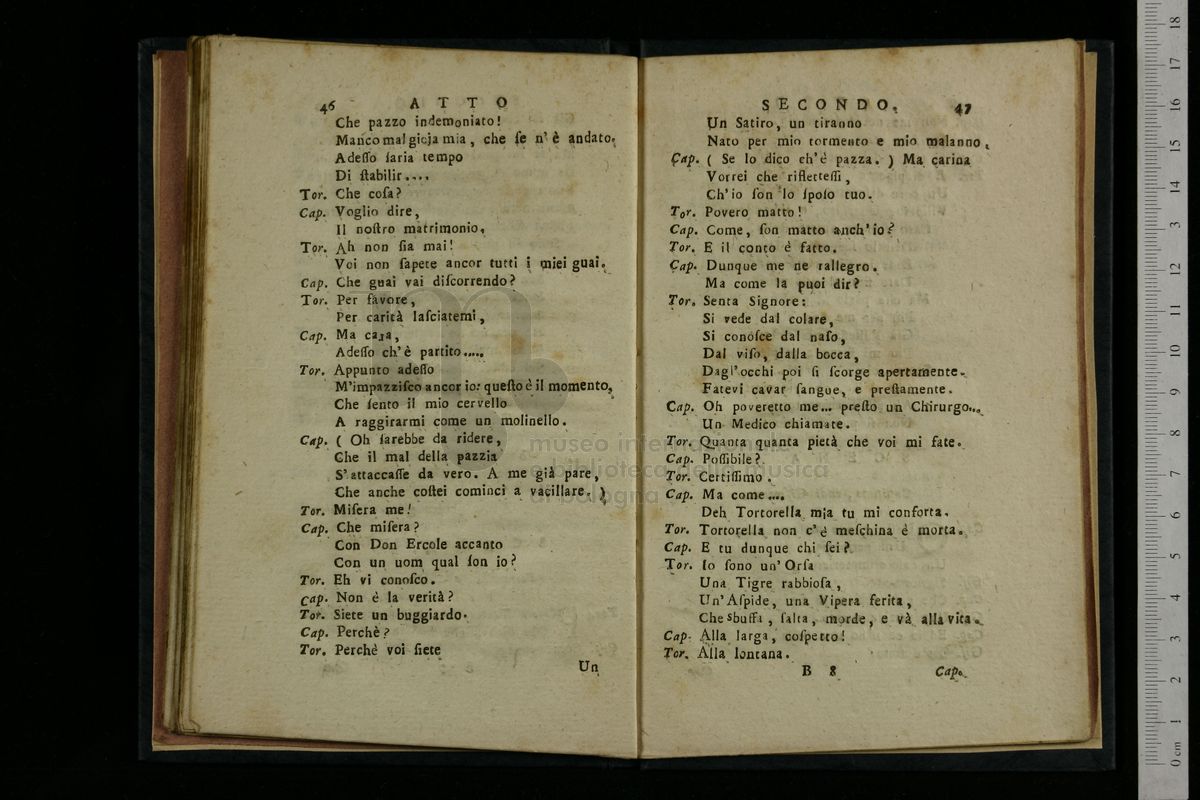 46 ATTO
Che pazzo indemoniato!
Manco mal gioja mia, che ſe n'è andato.
Adeſſo ſaria tempo
Di ſtabilir....
Tor. Che coſa?
Cap. Voglio dire,
Il noſtro matrimonio.
Tor. Ah non ſia mai!
Voi non ſapete ancor tutti i miei guai.
Cap. Che guai vai diſcorrendo?
Tor. Per favore,
Per carità laſciatemi,
Cap. Ma cara,
Adeſſo ch'è partito.....
Tor. Appunto adeſſo
M'impazziſco ancor io: queſto è il momento,
Che ſento il mio cervello
A raggirarmi come un molinello.
Cap. ( Oh ſarebbe da ridere,
Che il mal della pazzia
S'attaccaſſe da vero. A me già pare,
Che anche coſtei cominci a vacillare. )
Tor. Miſera me!
Cap. Che miſera?
Con Don Ercole accanto
Con un uom qual ſon io?
Tor. Eh vi conoſco.
Cap. Non è la verità?
Tor. Siete un buggiardo.
Cap. Perchè?
Tor. Perchè voi ſiete
Un
SECONDO. 47
Un Satiro, un tiranno
Nato per mio tormento e mio malanno.
Cap. ( Se lo dico ch'è pazza. ) Ma carina
Vorrei che rifletteſſi,
Ch'io ſon lo ſpoſo tuo.
Tor. Povero matto!
Cap. Come, ſon matto anch'io?
Tor. E il conto è fatto.
Cap. Dunque me ne rallegro.
Ma come la puoi dir?
Tor. Senta Signore:
Si vede dal colare,
Si conoſce dal naſo,
Dal viſo, dalla bocca,
Dagl'occhi poi ſi ſcorge apertamente.
Fatevi cavar ſangue, e preſtamente.
Cap. Oh poveretto me... preſto un Chirurgo...
Un Medico chiamate.
Tor. Quanta quanta pietà che voi mi fate.
Cap. Poſſibile?
Tor. Certiſſimo.
Cap. Ma come....
Deh Tortorella mia tu mi conforta.
Tor. Tortorella non c'è meſchina è morta.
Cap. E tu dunque chi ſei?
Tor. Io ſono un'Orſa
Una Tigre rabbioſa,
Un'Aſpide, una Vipera ferita,
Che sbuffa, ſalta, morde, e và alla vita.
Cap. Alla larga, coſpetto!
Tor. Alla lontana.
B 8 Cap.
museo internazionale
e biblioteca della musica
di bologna
0 cm 1 2 3 4 5 6 7 8 9 10 11 12 13 14 15 16 17 18